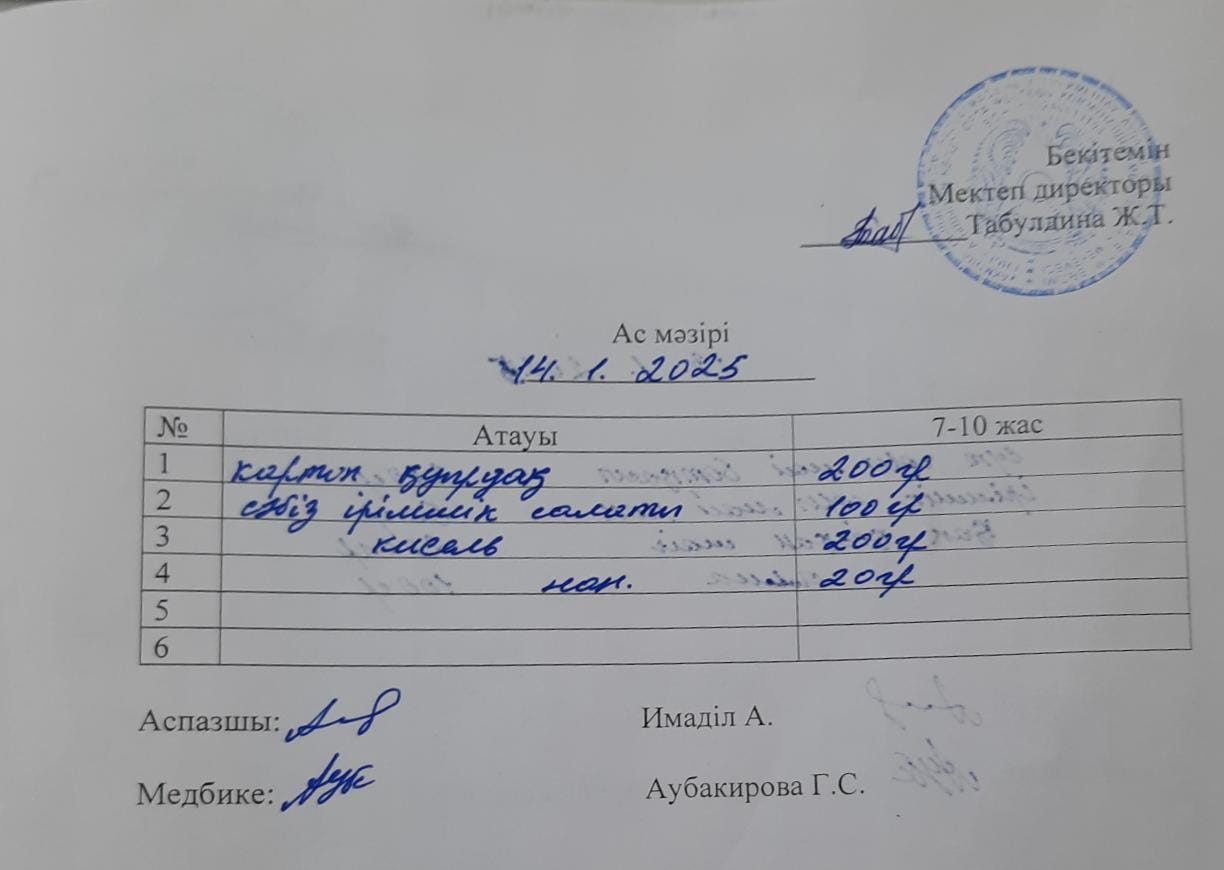 Бекітемін
Мектеп директоры
Табулдина Ж.Т.
Ас мәзірі
14. 1. 2025
№ Атауы 7-10 жас
1 картоп қуырдақ 200гр
2 сәбіз ірімшік салаты 100гр
3 кисель 200гр
4 нан. 20гр
5
6
Аспазшы: Имаділ А.
Медбике: Аубакирова Г.С.